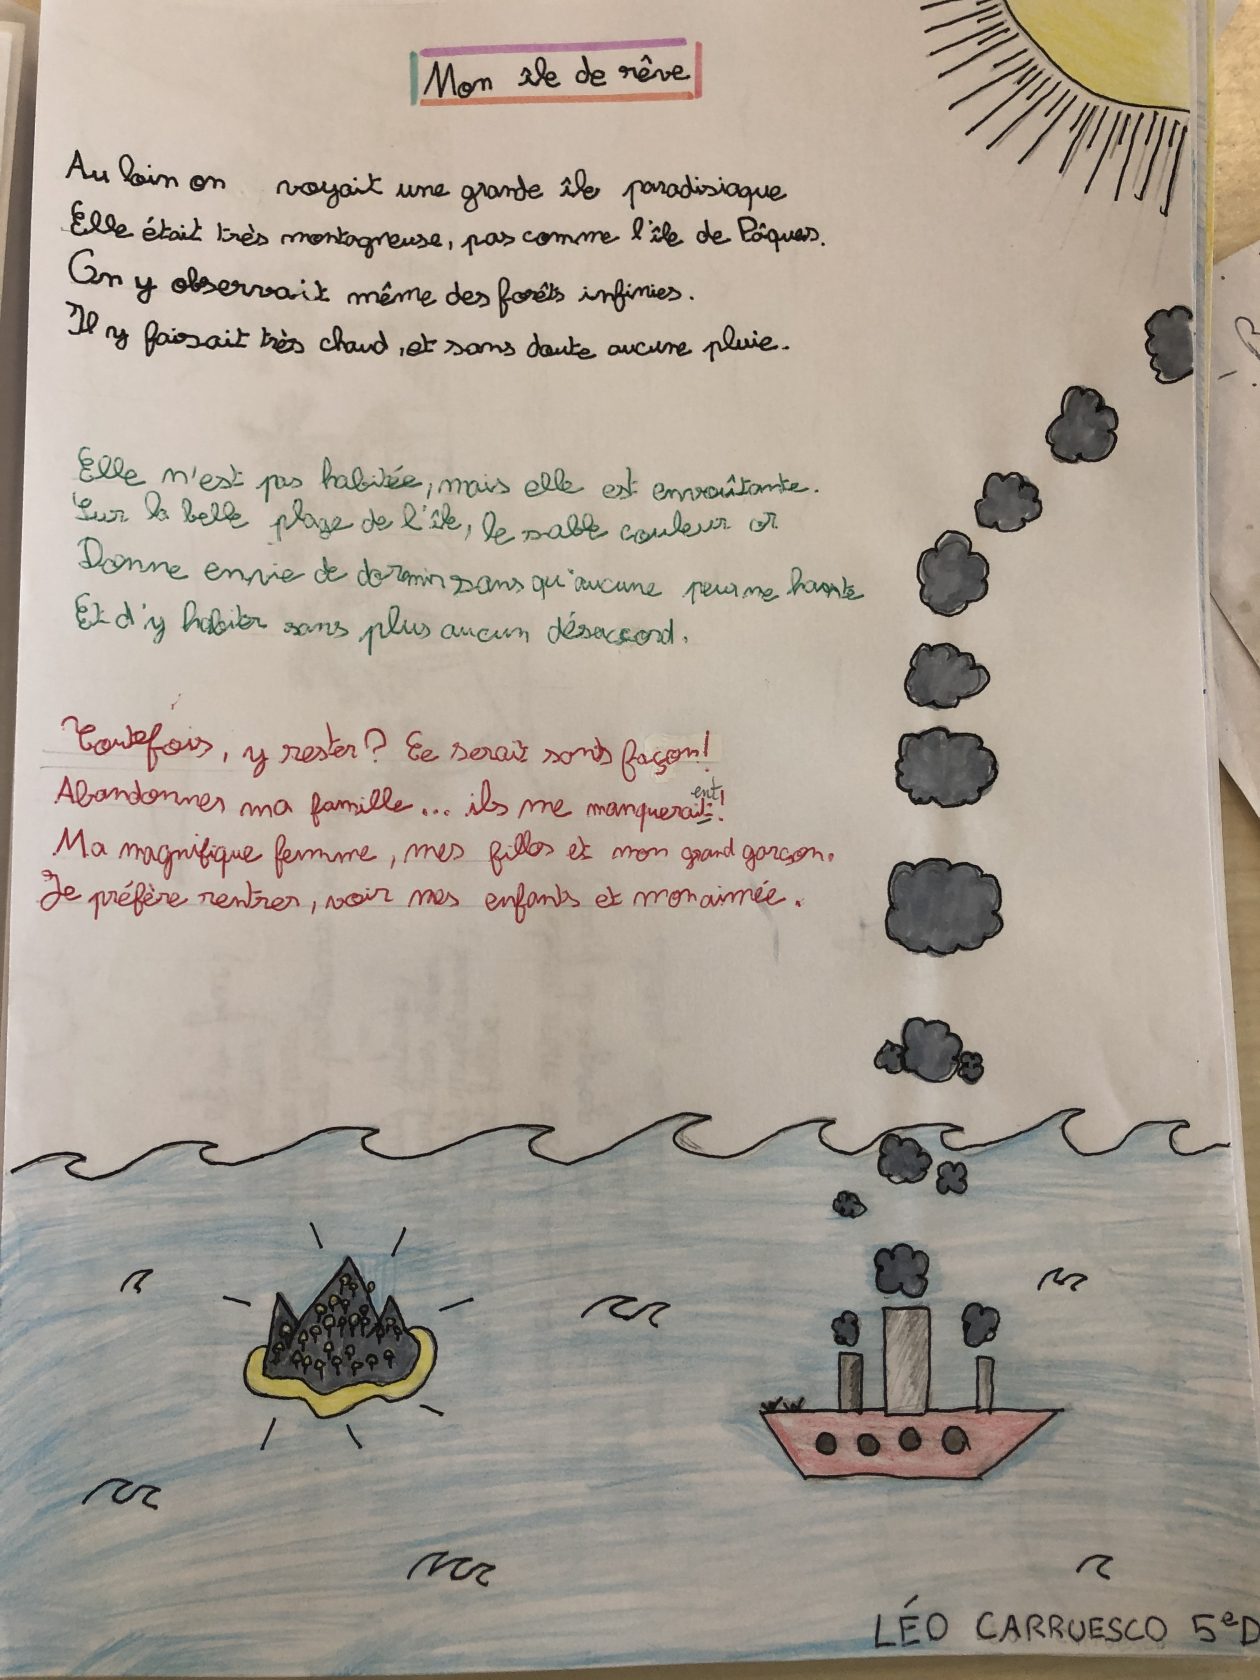 Mon île de rêve
Au loin on voyait une grande île paradisiaque
Elle était très montagneuse, pas comme l'île de Pâques.
On y observait même des forêts infinies.
Il y faisait très chaud, et sans doute aucune pluie.
Elle n'est pas habitée, mais elle est envoûtante.
Sur la belle plage de l'île, le sable couleur or
Donne envie de dormir sans qu'aucune peur ne hante
Et d'y habiter sans plus aucun désaccord.
Toutefois, y rester? Ce serait sans façon!
Abandonner ma famille... ils me manqueraient!
Ma magnifique femme, mes filles et mon grand garçon.
Je préfère rentrer, voir mes enfants et mon aimée.
LÉO CARRUESCO 5eD